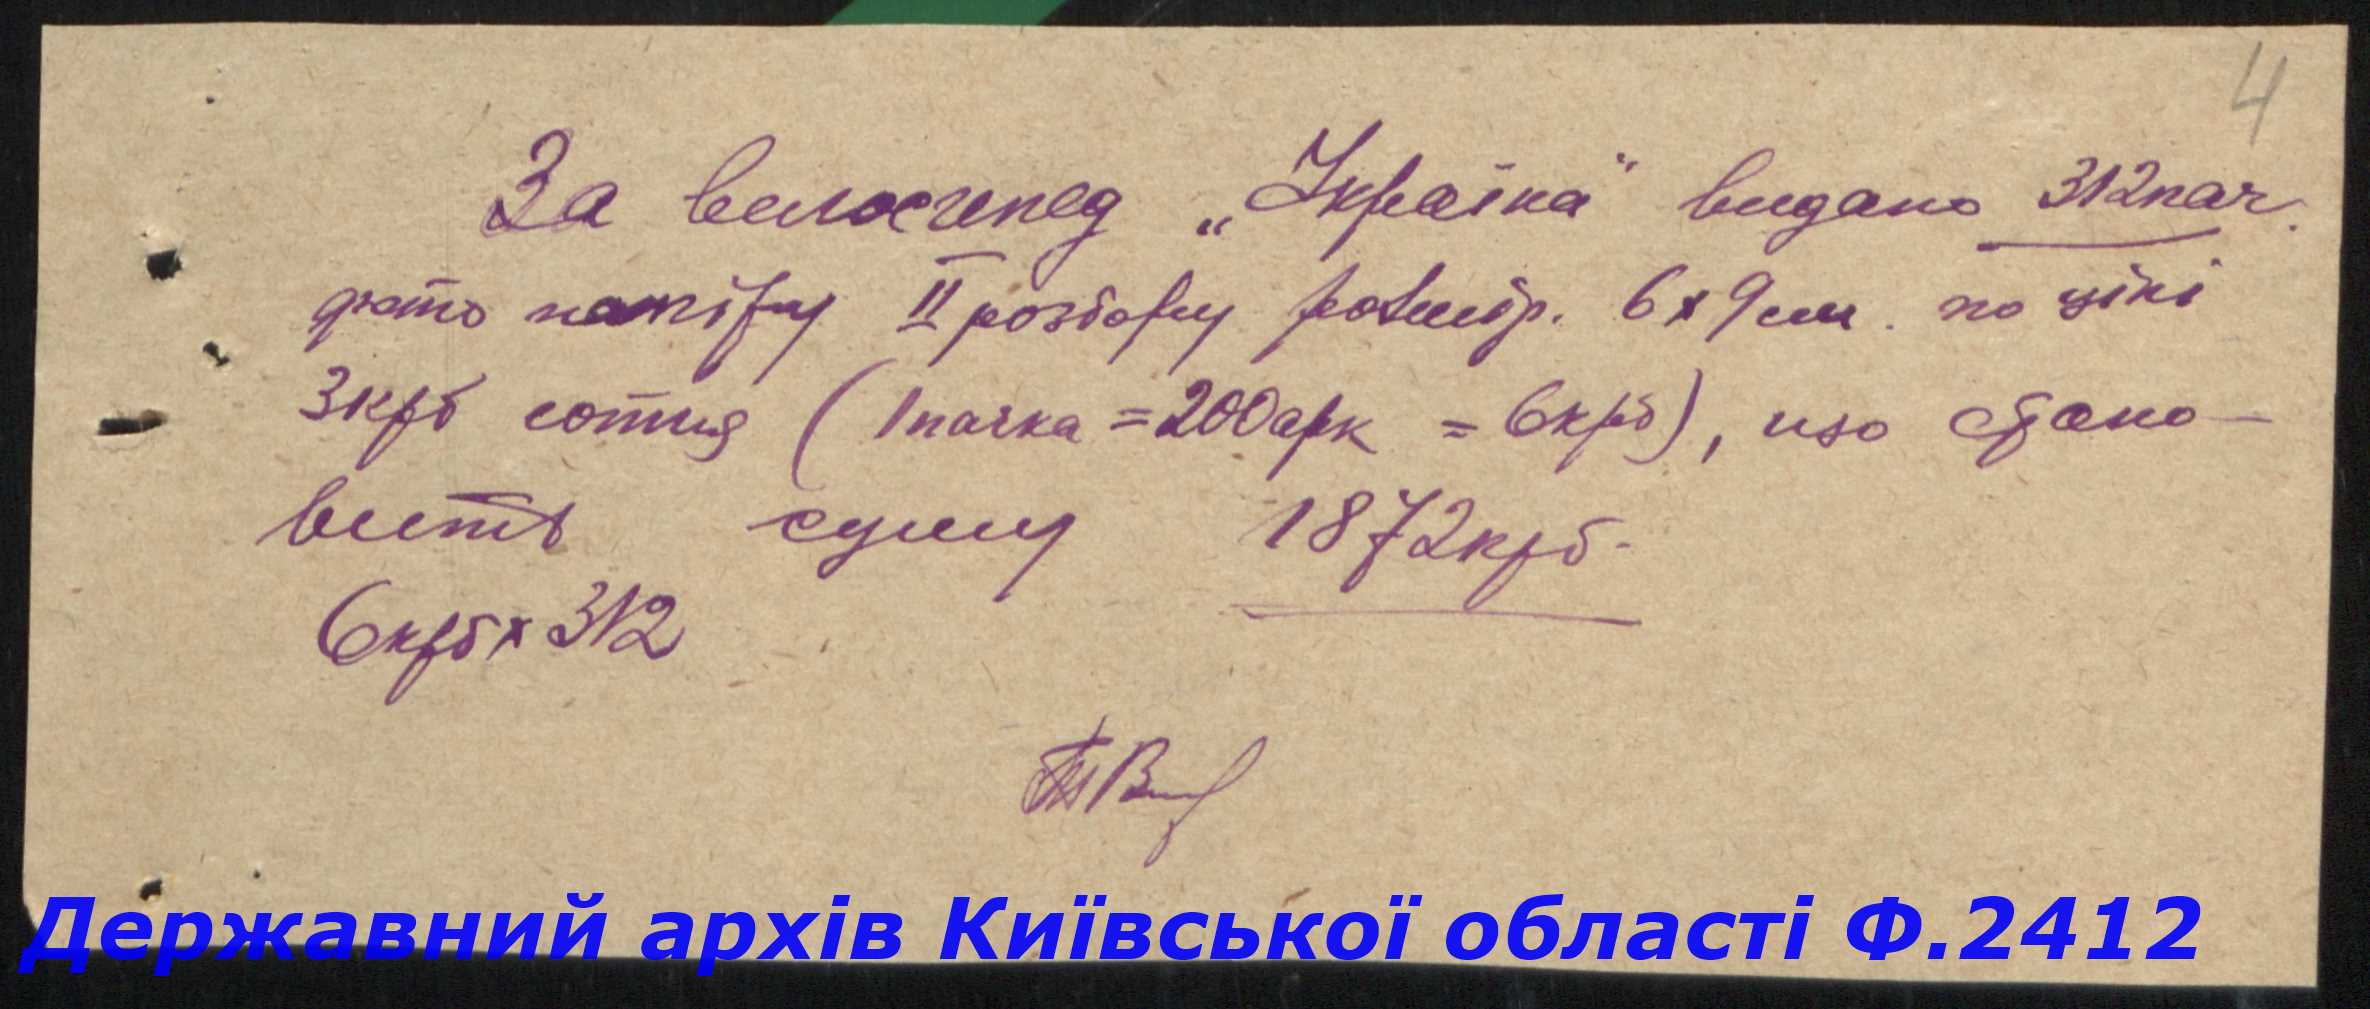 4
За велосипед „Україна“ видано 312 пач.
фото паперу II розбору розмір. 6 х 9 см. по ціні
3 крб сотня (1 пачка = 200 арк = 6 крб), що стано-
вить суму 1872 крб.
6 крб х 312
Державний архів Київської області Ф.2412